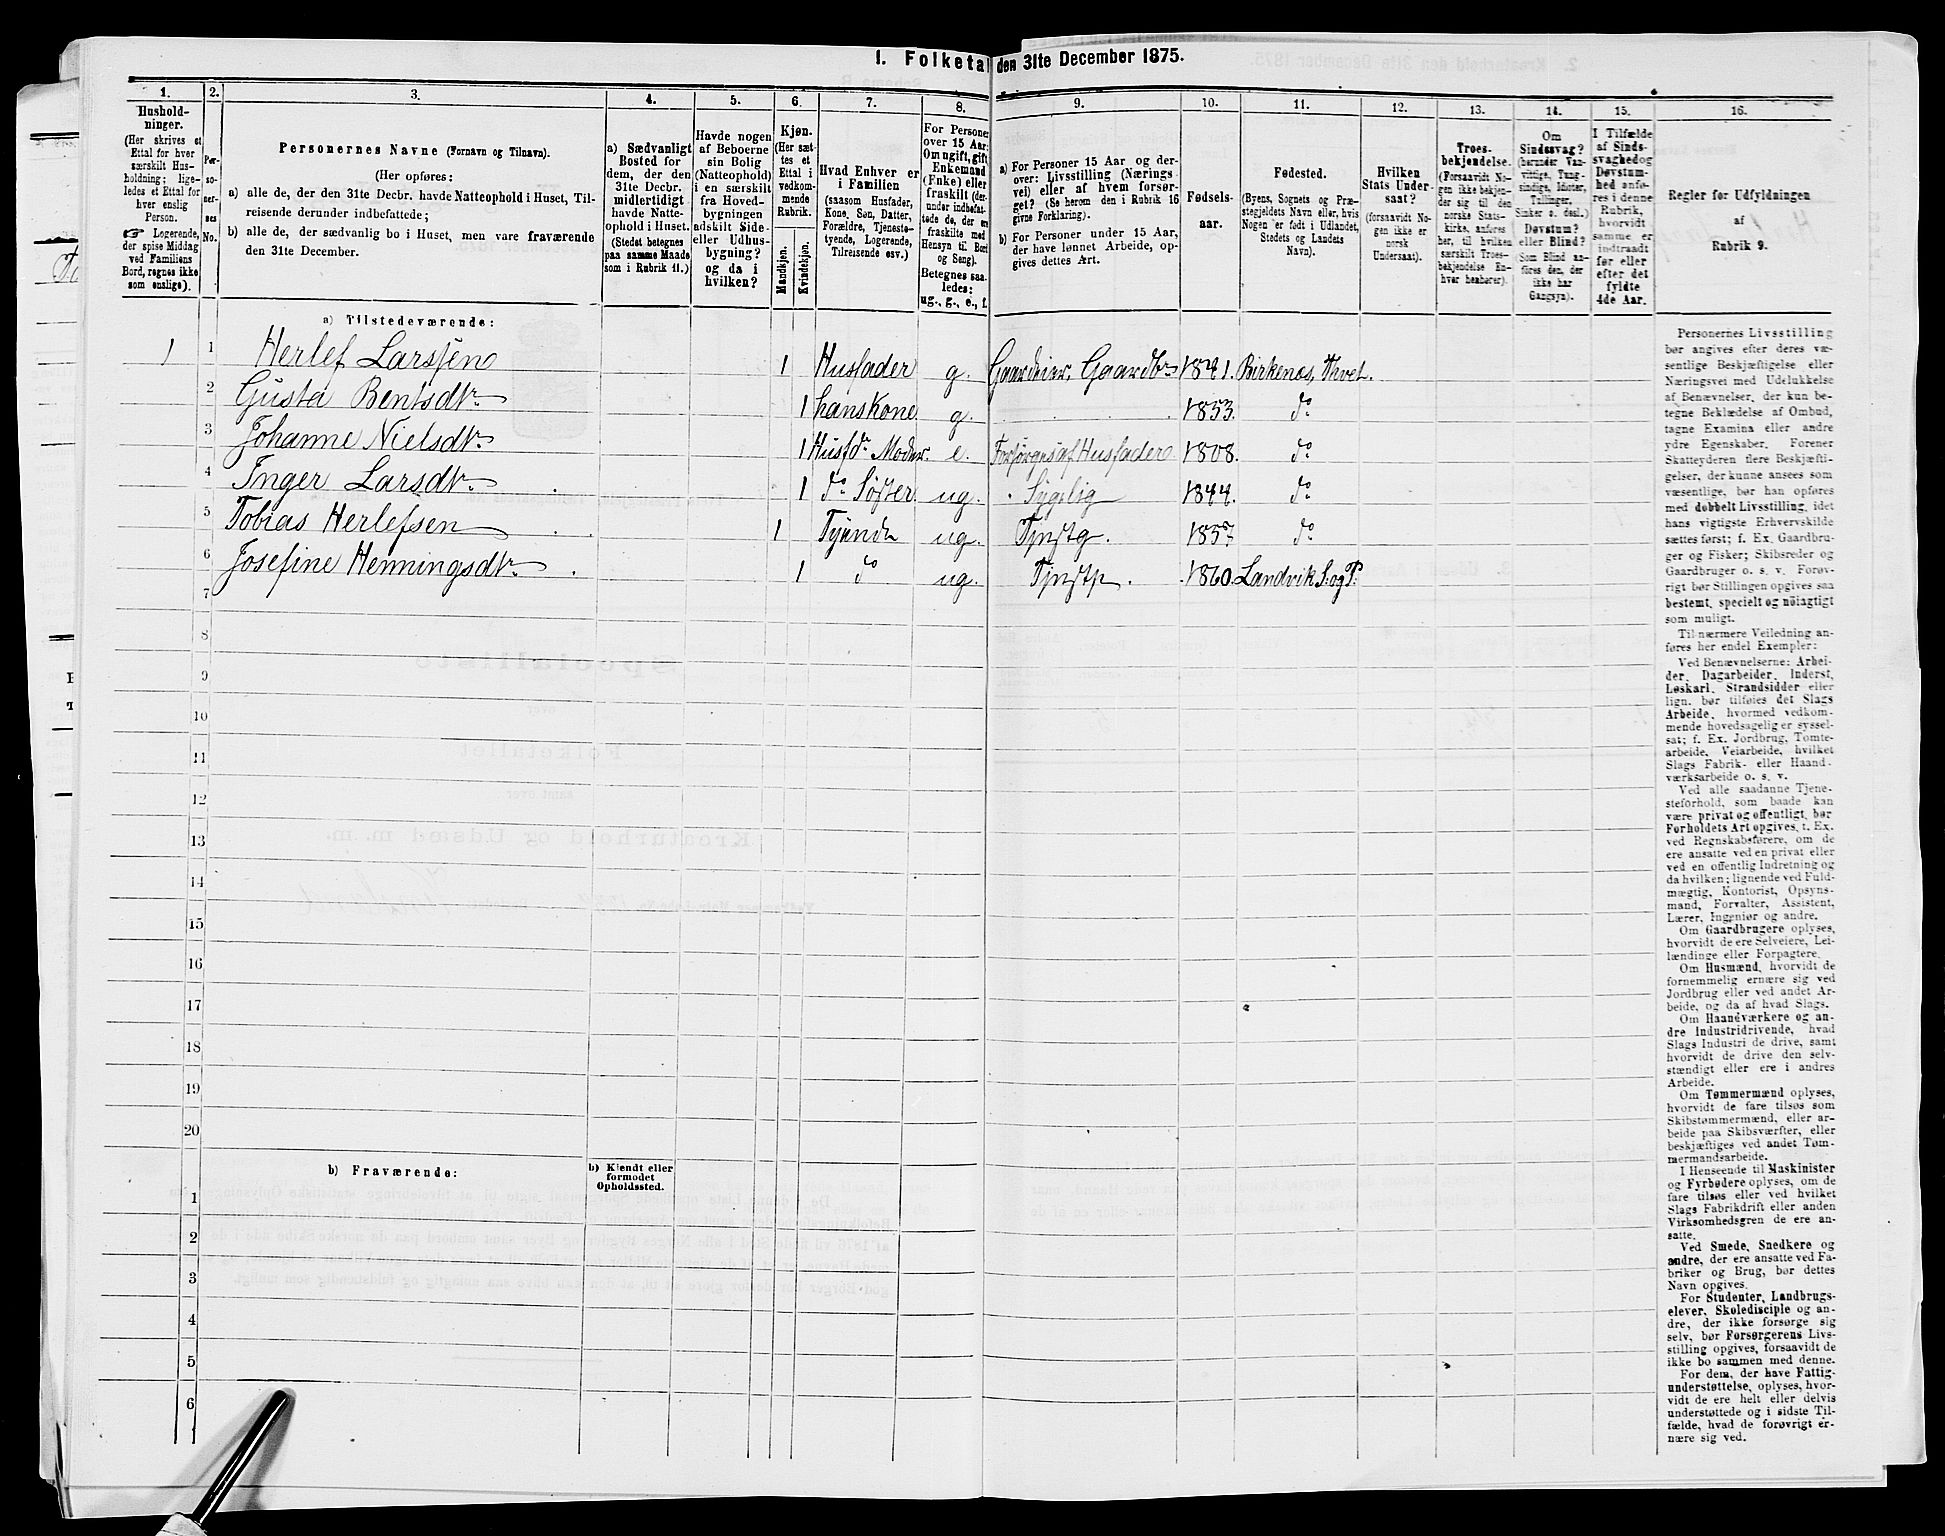 1. Folketal den 31te December 1875.
1. 2. 3. 4. 5. 6. 7. 8. 9. 10. 11. 12. 13. 14. 15. 16.
Hushold-
ninger.
(Her skrives et
Ettal for hver
særskilt Hus-
holdning; lige-
ledes et Ettal for
hver enslig
Person.
☞ Logerende,
der spise Middag
ved Familiens
Bord, regnes ikke
som enslige).
Per-
so-
ner-
nes
No.
Personernes Navne (Fornavn og Tilnavn).
(Her opføres:
a) alle de, der den 31te Decbr. havde Natteophold i Huset, Til-
reisende derunder indbefattede;
b) alle de, der sædvanlig bo i Huset, men vare fraværende
den 31te December.
a) Sædvanligt
Bosted for
dem, der den
31te Decbr.
midlertidigt
havde Natte-
ophold i Huset.
(Stedet betegnes
paa samme Maade
som i Rubrik 11.)
Havde nogen
af Beboerne
sin Bolig
(Natteophold)
i en særskilt
fra Hoved-
bygningen
adskilt Side-
eller Udhus-
bygning?
og da i
hvilken?
Kjøn.
(Her sæt-
tes et
Ettal i
vedkom-
mende
Rubrik.
Mandkjøn.
Kvindekjøn.
Hvad Enhver er
i Familien
(saasom Husfader,
Kone, Søn, Datter,
Forældre, Tjeneste-
tyende, Logerende,
Tilreisende osv.)
For Personer
over 15 Aar:
Om ugift, gift,
Enkemand
(Enke) eller
fraskilt (der-
under indbefat-
tede de, der ere
fraskilte med
Hensyn til Bord
og Seng).
Betegnes saa-
ledes:
ug., g., e., f.
a) For Personer 15 Aar og der-
over: Livsstilling (Nærings-
vei) eller af hvem forsør-
get? (Se herom den i Rubrik 16
givne Forklaring).
b) For Personer under 15 Aar,
der have lønnet Arbeide, op-
gives dettes Art.
Fødsels-
aar.
Fødested.
(Byens, Sognets og Præ-
stegjeldets Navn eller, hvis
Nogen er født i Udlandet,
Stedets og Landets
Navn).
Hvilken
Stats Under-
saat?
(forsaavidt No-
gen ikke er
norsk
Undersaat).
Troes-
bekjendelse.
(Forsaavidt No-
gen ikke beken-
der sig til den
norske Stats-
kirke, anføres
her, til hvilken
særskilt Troes-
bekjendelse En-
hver henhører).
Om
Sindssvag?
(herunder Van-
vittige, Tung-
sindige, Idioter,
Tillinger,
Sinker o. desl.)
Døvstum?
eller Blind?
(Som Blind an-
føres den, der
ikke har
Gangsyn).
I Tilfælde
af Sinds-
svaghed og
Døvstum-
hed anfø-
res i denne
Rubrik,
hvorvidt
samme er
indtraadt
før eller
efter det
fyldte
4de Aar.
Regler for Udfyldningen
af
Rubrik 9.
a) Tilstedeværende:
1 1 Herlef Larssen 1 Husfader g. Gaardeier, Gaardbr 1841. Birkenæs, Thvet.
2 Gusta Bentsdtr 1 hans Kone g. 1853. do
3 Johanne Nielsdtr 1 Husfdr Moder. e. Forsørges af Husfader 1808. do
4 Inger Larsdtr 1 do Søster ug. Sygelig 1844. do
5 Tobias Herlefsen 1 Tjende ug. Tjnstg. 1857 do
6 Josefine Henningsdtr 1 do ug. Tjnstp. 1860. Landvik S: og P:
7
8
9
10
11
12
13
14
15
16
17
18
19
20
b) Fraværende: b) Kjendt eller
formodet
Opholdssted.
1
2
3
4
5
6
Personernes Livsstilling
bør angives efter deres væ-
sentlige Beskjæftigelse eller
Næringsvei med Udelukkelse
af Benævnelser, der kun be-
tegne Beklædelse af Ombud,
tagne Examina eller andre
ydre Egenskaber. Forener
Skatteyderen flere Beskjæfti-
gelser, der kunne ansees som
væsentlige, bør han opføres
med dobbelt Livsstilling, idet
hans vigtigste Erhvervskilde
sættes først; f. Ex. Gaardbru-
ger og Fisker; Skibsreder og
Gaardbruger o. s. v. Forøv-
rigt bør Stillingen opgives saa
bestemt, specielt og nöiagtigt
som muligt.
Til nærmere Veiledning an-
føres her endel Exempler:
Ved Benævnelserne: Arbei-
der, Dagarbeider, Inderst,
Løskarl, Strandsidder eller
lign. bør tilføies det Slags
Arbeide, hvormed vedkom-
mende hovedsagelig er syssel-
sat; f. Ex. Jordbrug, Tomte-
arbeide, Veiarbeide, hvilket
Slags Fabrik- eller Haand-
værksarbeide o. s. v.
Ved alle saadanne Tjene-
steforhold, som baade kan
være privat og offentligt, bør
Forholdets Art opgives, t. Ex.
ved Regnskabsførere, om de
ere ansatte ved en privat eller
ved en offentlig Indretning og
da hvilken; lignende ved Fuld-
mægtig, Kontorist, Opsyns-
mand, Forvalter, Assistent,
Lærer, Ingeniør og andre.
Om Gaardbrugere oplyses,
hvorvidt de ere Selveiere, Lei-
lændinge eller Forpagtere.
Om Husmænd, hvorvidt de
fornemmelig ernære sig ved
Jordbrug eller ved andet Ar-
beide, og da af hvad Slags.
Om Haandværkere og an-
dre Industridrivende, hvad
Slags Industri de drive, samt
hvorvidt de drive den selv-
stændigt eller ere i andres
Arbeide.
Om Tømmermænd oplyses,
hvorvidt de fare tilsøs som
Skibstømmermænd, eller ar-
beide paa Skibsværfter, eller
beskjæftiges ved andet Tøm-
mermandsarbeide.
I Henseende til Maskinister
og Fyrbødere oplyses, om de
fare tilsøs eller ved hvilket
Slags Fabrikdrift eller anden
Virksomhedsgren de ere an-
satte.
Ved Smede, Snedkere og
andre, der ere ansatte ved Fa-
briker og Brug, bør dettes
Navn opgives.
For Studenter, Landbrugs-
elever, Skoledisciple og an-
dre, der ikke forsørge sig
selv, bør Forsørgerens Livs-
stilling opgives, forsaavidt de
ikke bo sammen med denne.
For dem, der have Fattig-
understøttelse, oplyses, hvor-
vidt de ere helt eller delvis
understøttede og i sidste Til-
fælde, hvad de forøvrigt er-
nære sig ved.